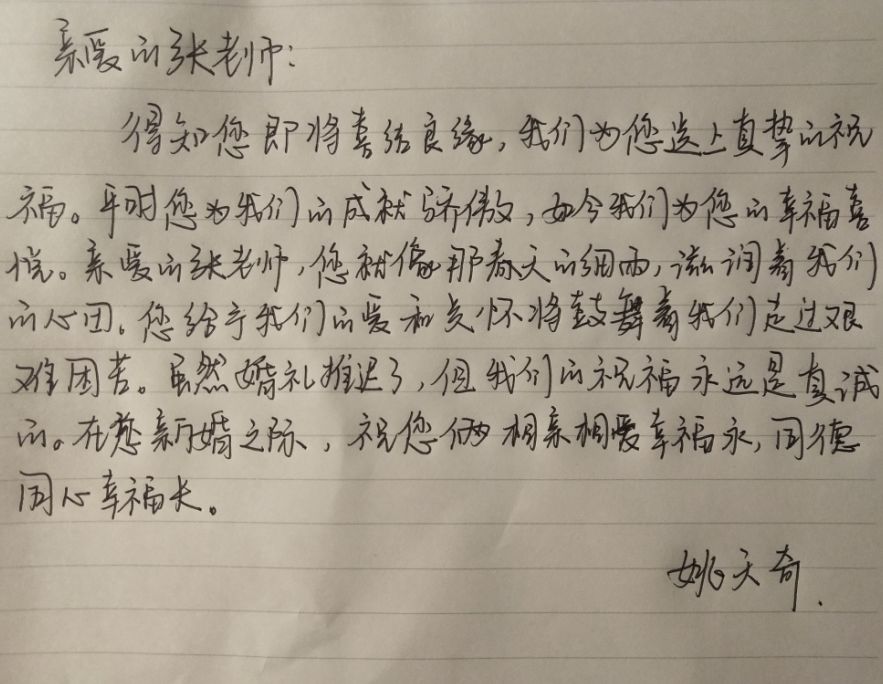 亲爱的张老师：
得知您即将喜结良缘，我们为您送上真挚的祝
福。平时您为我们的成就骄傲，如今我们为您的幸福喜
悦。亲爱的张老师，您就像那春天的细雨，滋润着我们
的心田。您给予我们的爱和关怀将鼓舞着我们走过艰
难困苦。虽然婚礼推迟了，但我们的祝福永远是真诚
的。在您新婚之际，祝您俩相亲相爱幸福永，同德
同心幸福长。
姚天奇.